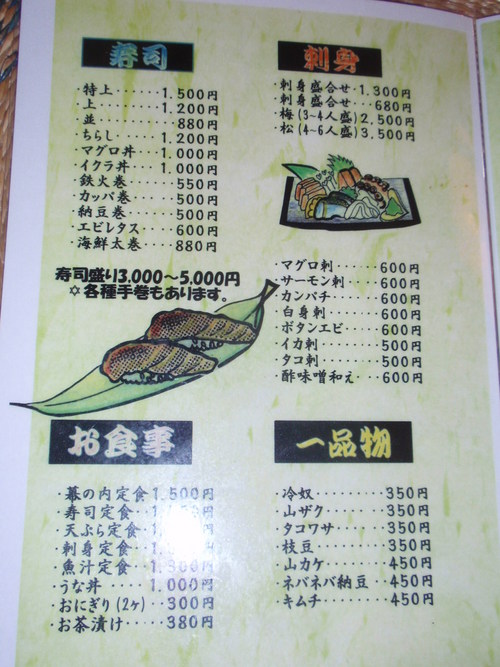 寿司
・特上・・・・・1.500円
・上・・・・・・・1.200円
・並・・・・・・・・880円
・ちらし・・・・1.200円
・マグロ丼・・1.000円
・イクラ丼・・1.000円
・鉄火巻・・・・・550円
・カッパ巻・・・・500円
・納豆巻・・・・・500円
・エビレタス・・500円
・海鮮太巻・・・880円
寿司盛り3.000〜5.000円
✡各種手巻もあります。
刺身
・刺身盛合せ・1.300円
・刺身盛合せ・・・680円
・梅(3~4人盛)2.500円
・松(4~6人盛)3.500円
・マグロ刺・・・・・・600円
・サーモン刺・・・・600円
・カンパチ・・・・・・600円
・白身刺・・・・・・・600円
・ボタンエビ・・・・600円
・イカ刺・・・・・・・500円
・タコ刺・・・・・・・500円
・酢味噌和え・・・600円
お食事
・幕の内定食1.500円
・寿司定食・・円
・天ぷら定食・円
・刺身定食・・円
・魚汁定食・・円
・うな丼・・・・1.000円
・おにぎり(2ヶ)・・300円
・お茶漬け・・・・・380円
一品物
・冷奴・・・・・・・・・350円
・山ザク・・・・・・・350円
・タコワサ・・・・・350円
・枝豆・・・・・・・・・350円
・山カケ・・・・・・・450円
・ネバネバ納豆・・450円
・キムチ・・・・・・・450円